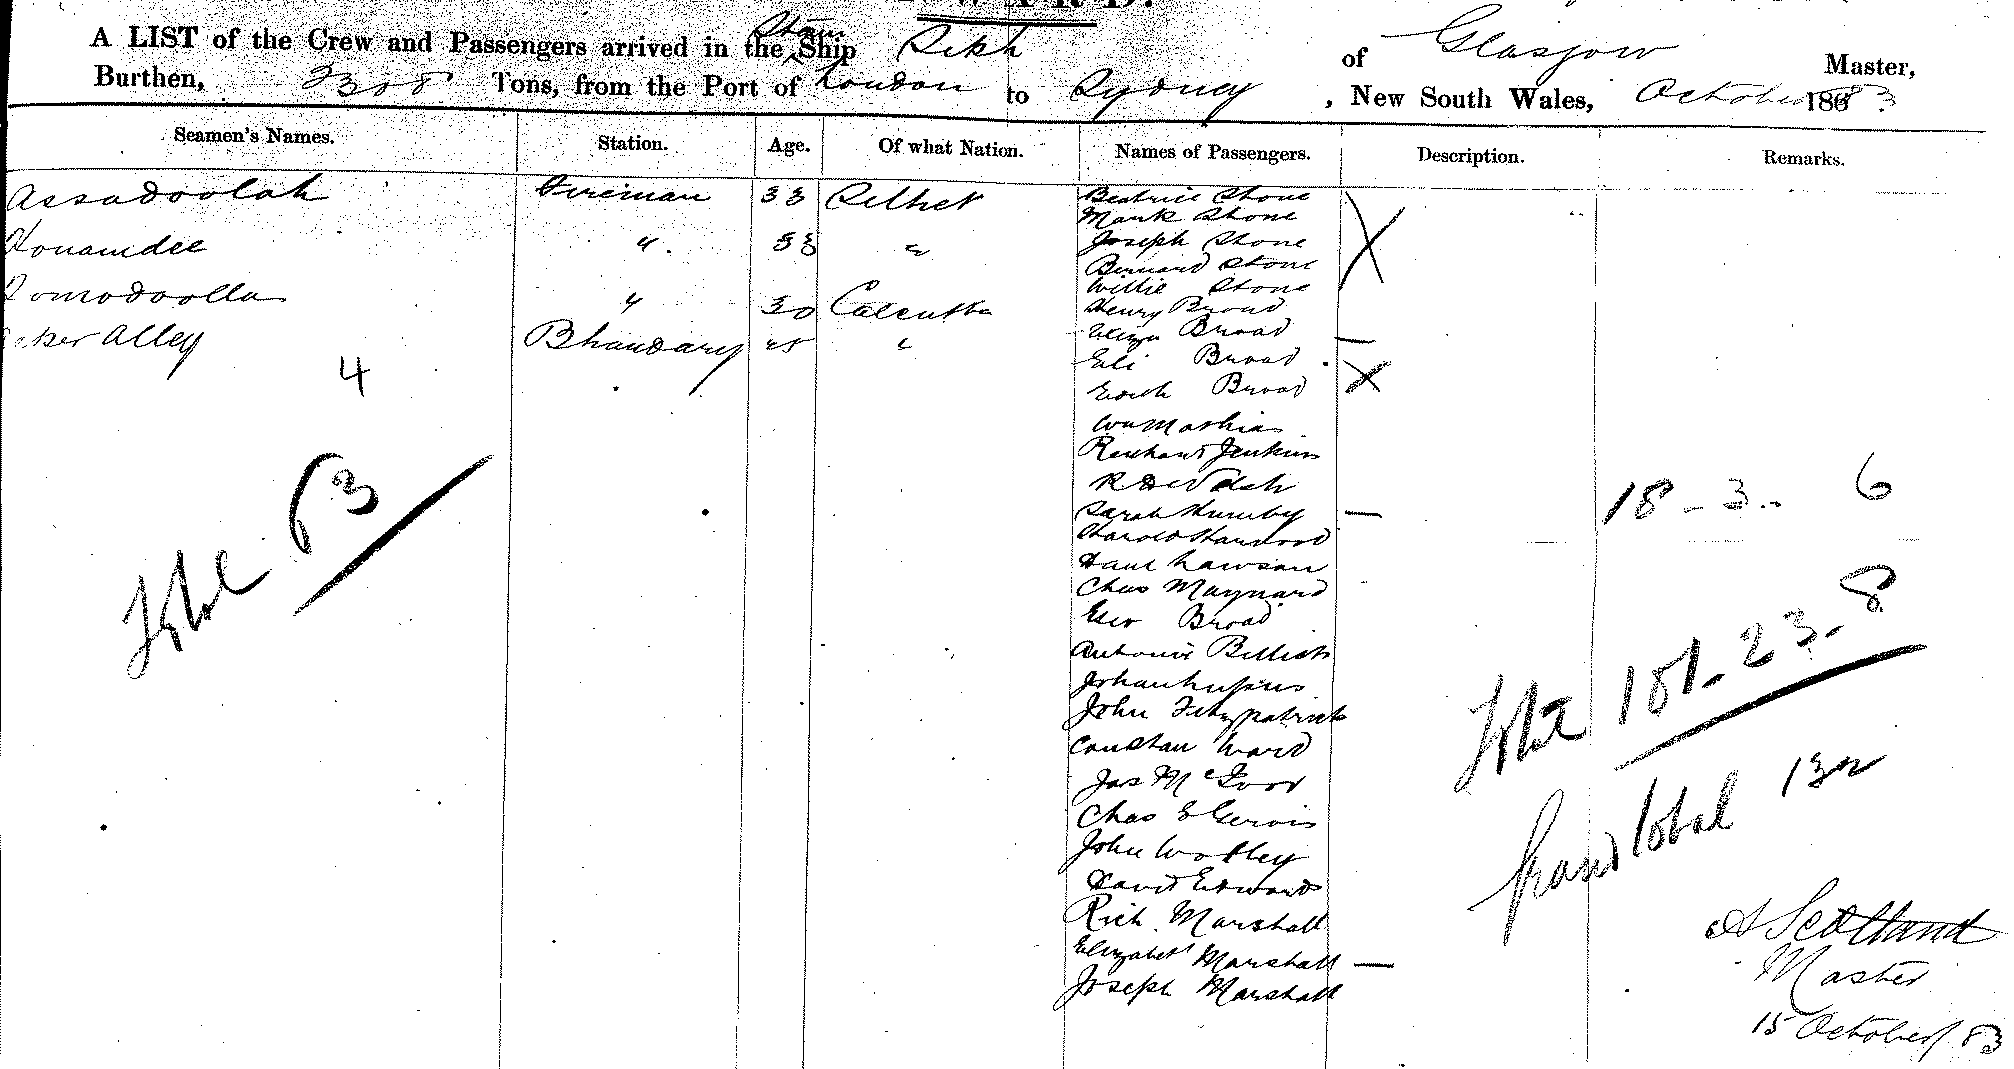 A LIST of the Crew and Passengers arrived in the Steam Ship Sikh of Glasgow Master,
Burthen, 2308 Tons, from the Port of London to Sydney, New South Wales, October 1883.
Seamen's Names. Station. Age. Of what Nation. Names of Passengers. Description. Remarks.
Assadoolah Fireman 33 Silhet Beatrice Stone
Mark Stone
" 33 " Joseph Stone X
Bernard Stone
Willie Stone
" 30 Calcutta Henry Broad
Alley Bhandary 45 " Eliza Broad —
4 Eli Broad
Edith Broad X
Wm Mathias
Jenkins
18 - 3 - 6
Total 63 Sarah —
Harold Harwood
Lawson
Chas Maynard
Geo Broad
Antonio
Total 101. 23. 8
John Fitzpatrick
Ward
Jas McIvor
Grand total 132
Chas E Gervis
John
David Edwards
Rich. Marshall
A Scotland
Elizabeth Marshall —
Master
Joseph Marshall
15 October/83